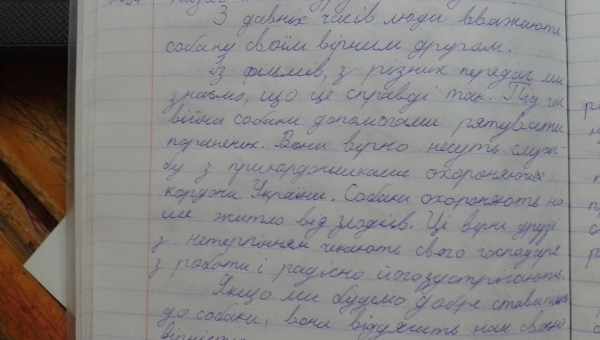 З давніх часів люди вважають
собаку своїм вірним другом.
З фільмів, з різних передач ми
знаємо, що це справді так. Під час
війни собаки допомагали рятувати
поранених. Вони вірно несуть служ-
бу з прикордонниками охороняючи
кордони України. Собаки охороняють на
ше житло від злодіїв. Ці вірні друзі
з нетерпінням чекають свого господаря
з роботи і радісно його зустрічають.
Якщо ми будемо добре ставитись
до собаки, вона віддячить нам своєю